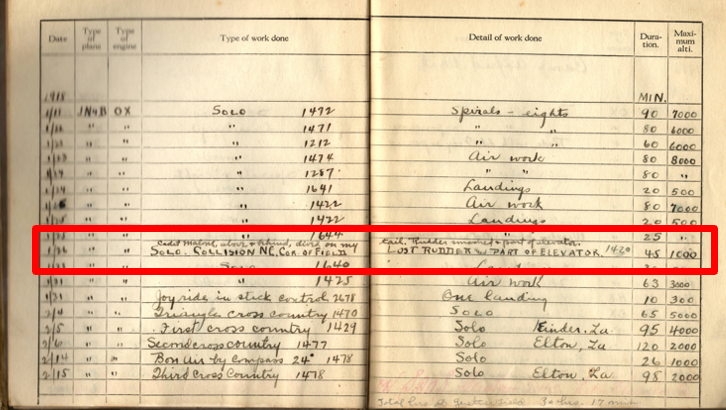 Date Type of plane Type of engine Type of work done Detail of work done Dura-tion. Maxi-mum alti.
1918 MIN.
1/11 JN4B OX SOLO 1472 Spirals – eights 90 7000
" " " 1471 " " 80 6000
" " " 1212 " " 60 6000
" " " 1474 Air work 80 8000
" " " 1287 " " 80 "
" " " 1641 Landings 20 500
" " " 1422 Air work 80 7000
" " " 1422 Landings 20 500
" " " 1644 " 25 "
Cadet above & behind, dived on my tail, Rudder smashed & part of elevator.
" " SOLO. COLLISION N.E. COR. OF FIELD LOST RUDDER & PART OF ELEVATOR. 1420 45 1000
" " Solo 1640
" " " 1425 Air work 63 3000
1/31 " " Joy ride in stick control 2678 One landing 10 300
2/4 " " Triangle cross country 1470 SOLO 65 5000
2/5 " " First cross country 1429 Solo Kinder, La 95 4000
2/6 " " Second cross country 1477 Solo Elton, La 120 2000
2/14 " " Bon Air by compass 24" 1478 Solo 26 1000
2/15 " " Third Cross Country 1478 Solo Elton, La 95 2000
Total hrs at 30 hrs. 17 min